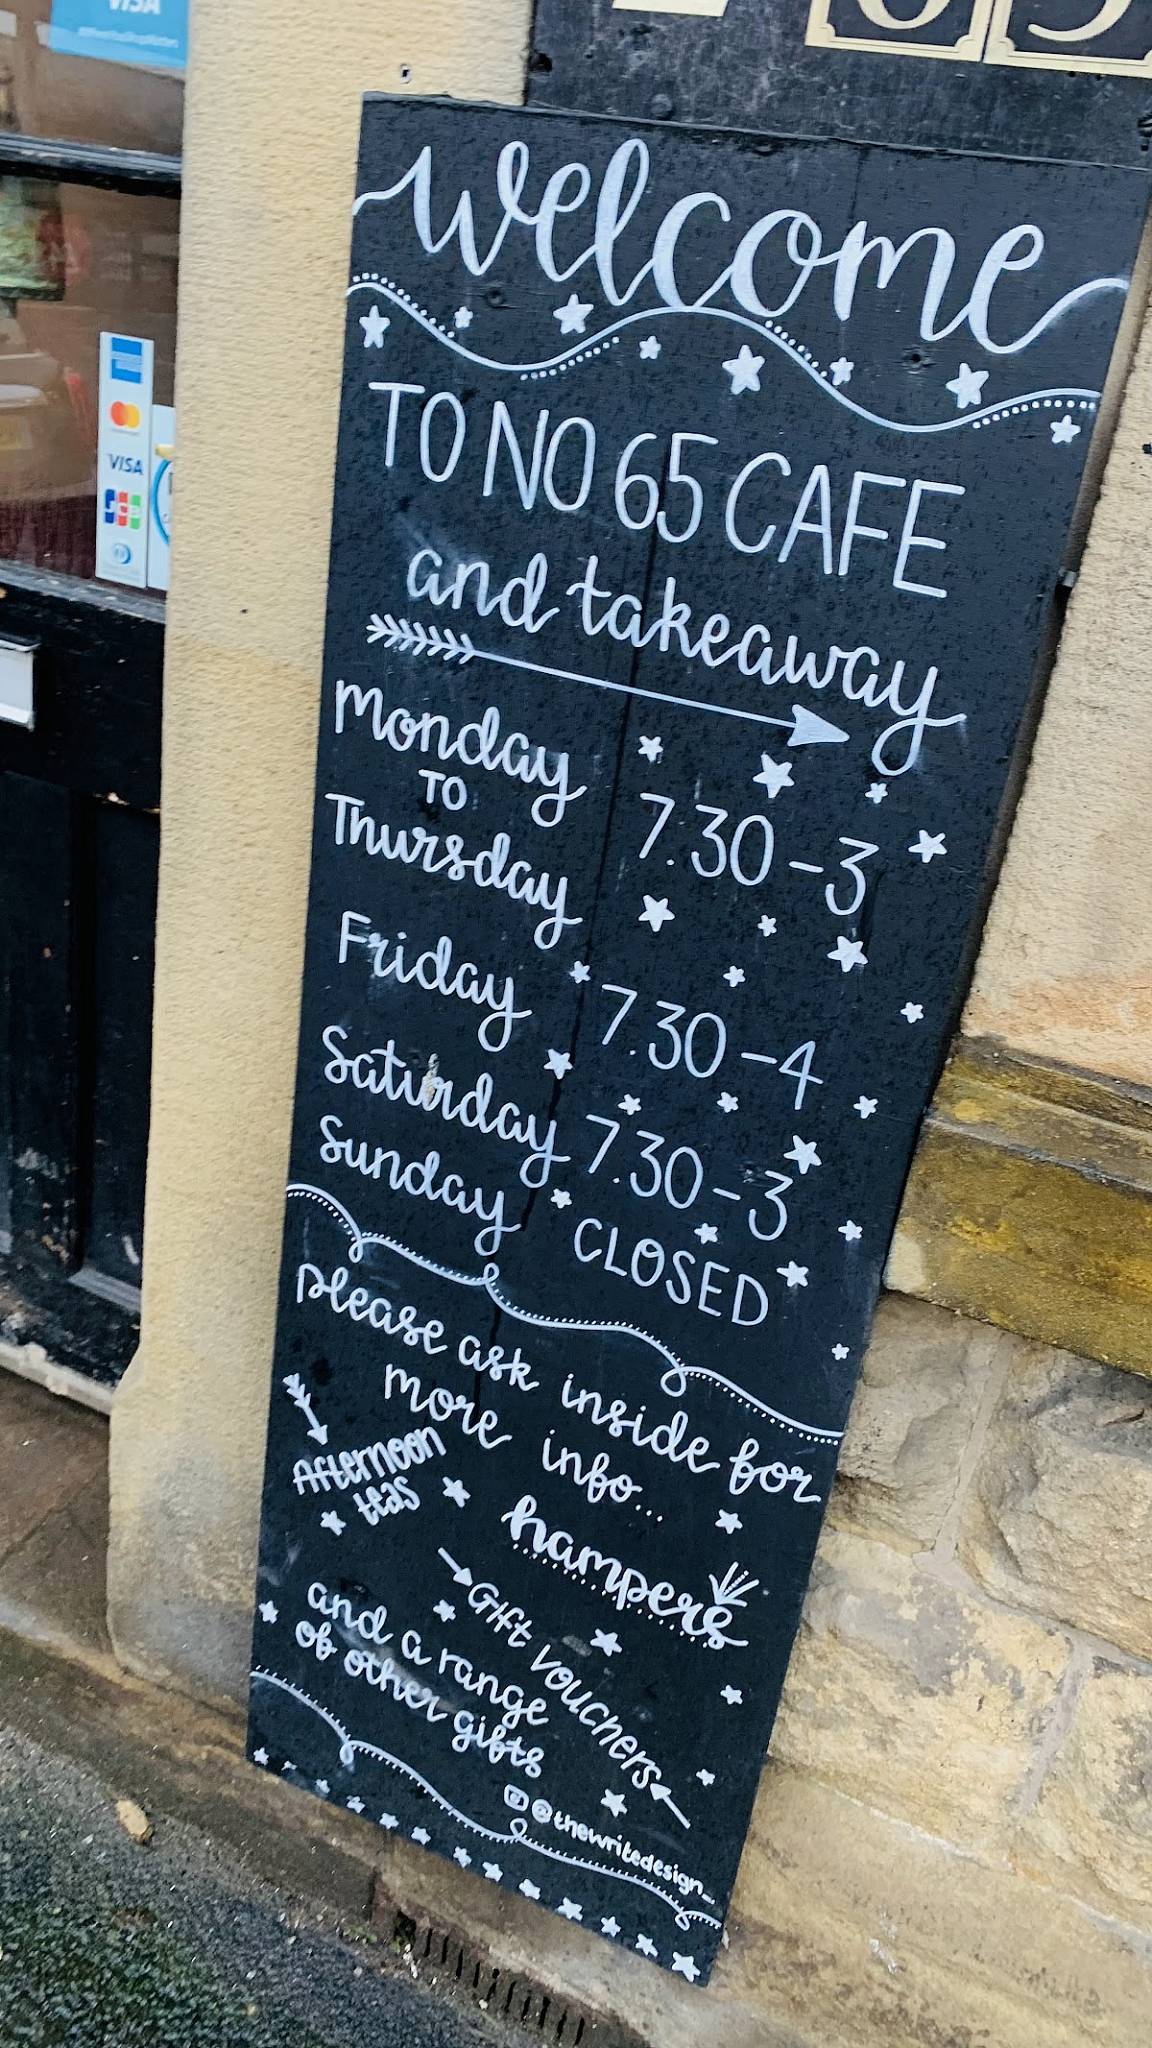 VISA
65
welcome
TO NO 65 CAFE
and takeaway
Monday
TO
Thursday
7.30 - 3
Friday 7.30 - 4
Saturday 7.30 - 3
Sunday CLOSED
please ask inside for
more info...
Afternoon
teas
hampers
Gift vouchers
and a range
of other gifts
@thewritedesign_
VISA
JCB